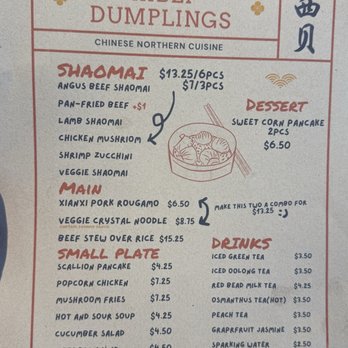 DUMPLINGS
西
贝
CHINESE NORTHERN CUISINE
SHAOMAI $13.25/6PCS
$7/3PCS
ANGUS BEEF SHAOMAI
PAN-FRIED BEEF +$1
LAMB SHAOMAI
CHICKEN MUSHRIOM
SHRIMP ZUCCHINI
VEGGIE SHAOMAI
DESSERT
SWEET CORN PANCAKE
2PCS
$6.50
MAIN
XIANXI PORK ROUGAMO $6.50
VEGGIE CRYSTAL NOODLE $8.75
BEEF STEW OVER RICE $15.25
MAKE THIS TWO A COMBO FOR
$13.25 :)
SMALL PLATE
SCALLION PANCAKE $4.25
POPCORN CHICKEN $7.25
MUSHROOM FRIES $7.25
HOT AND SOUR SOUP $4.25
CUCUMBER SALAD $4.50
DRINKS
ICED GREEN TEA $3.50
ICED OOLONG TEA $3.50
RED BEAD MILK TEA $4.25
OSMANTHUS TEA(HOT) $3.50
PEACH TEA $3.50
GRAPRFRUIT JASMINE $3.50
SPARKING WATER $2.50